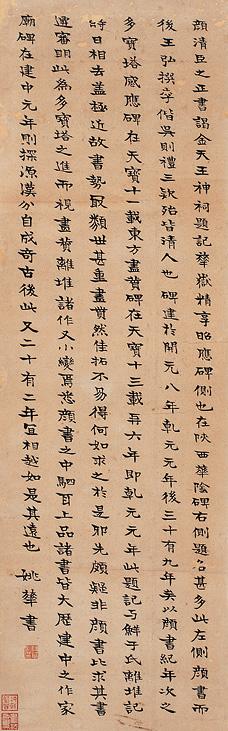 顏清臣之正書謁金天王神祠題記華嶽精享昭應碑側也在陝西華陰碑右側題名甚多此左側顏書而
後王弘撰李偕吳則禮三款皆清人也碑建於開元八年乾元元年後三十有九年矣以顏書紀年次之
多寶塔感應碑在天寶十一載東方畫贊碑在天寶十三載再六年即乾元元年此題記與鮮于氏離堆記
時日相去蓋極近故書勢取類世甚重畫贊然佳拓不易得何如求之於是耶先頗疑非顏書比求其書
遂審明此為多寶塔之進而視畫贊離堆諸作又小變焉恐顏書之中駟耳上品諸書皆大歷建中之作家
廟碑在建中元年則探源漢分自成奇古後此又二十有二年宜相越如是其遠也 姚華書